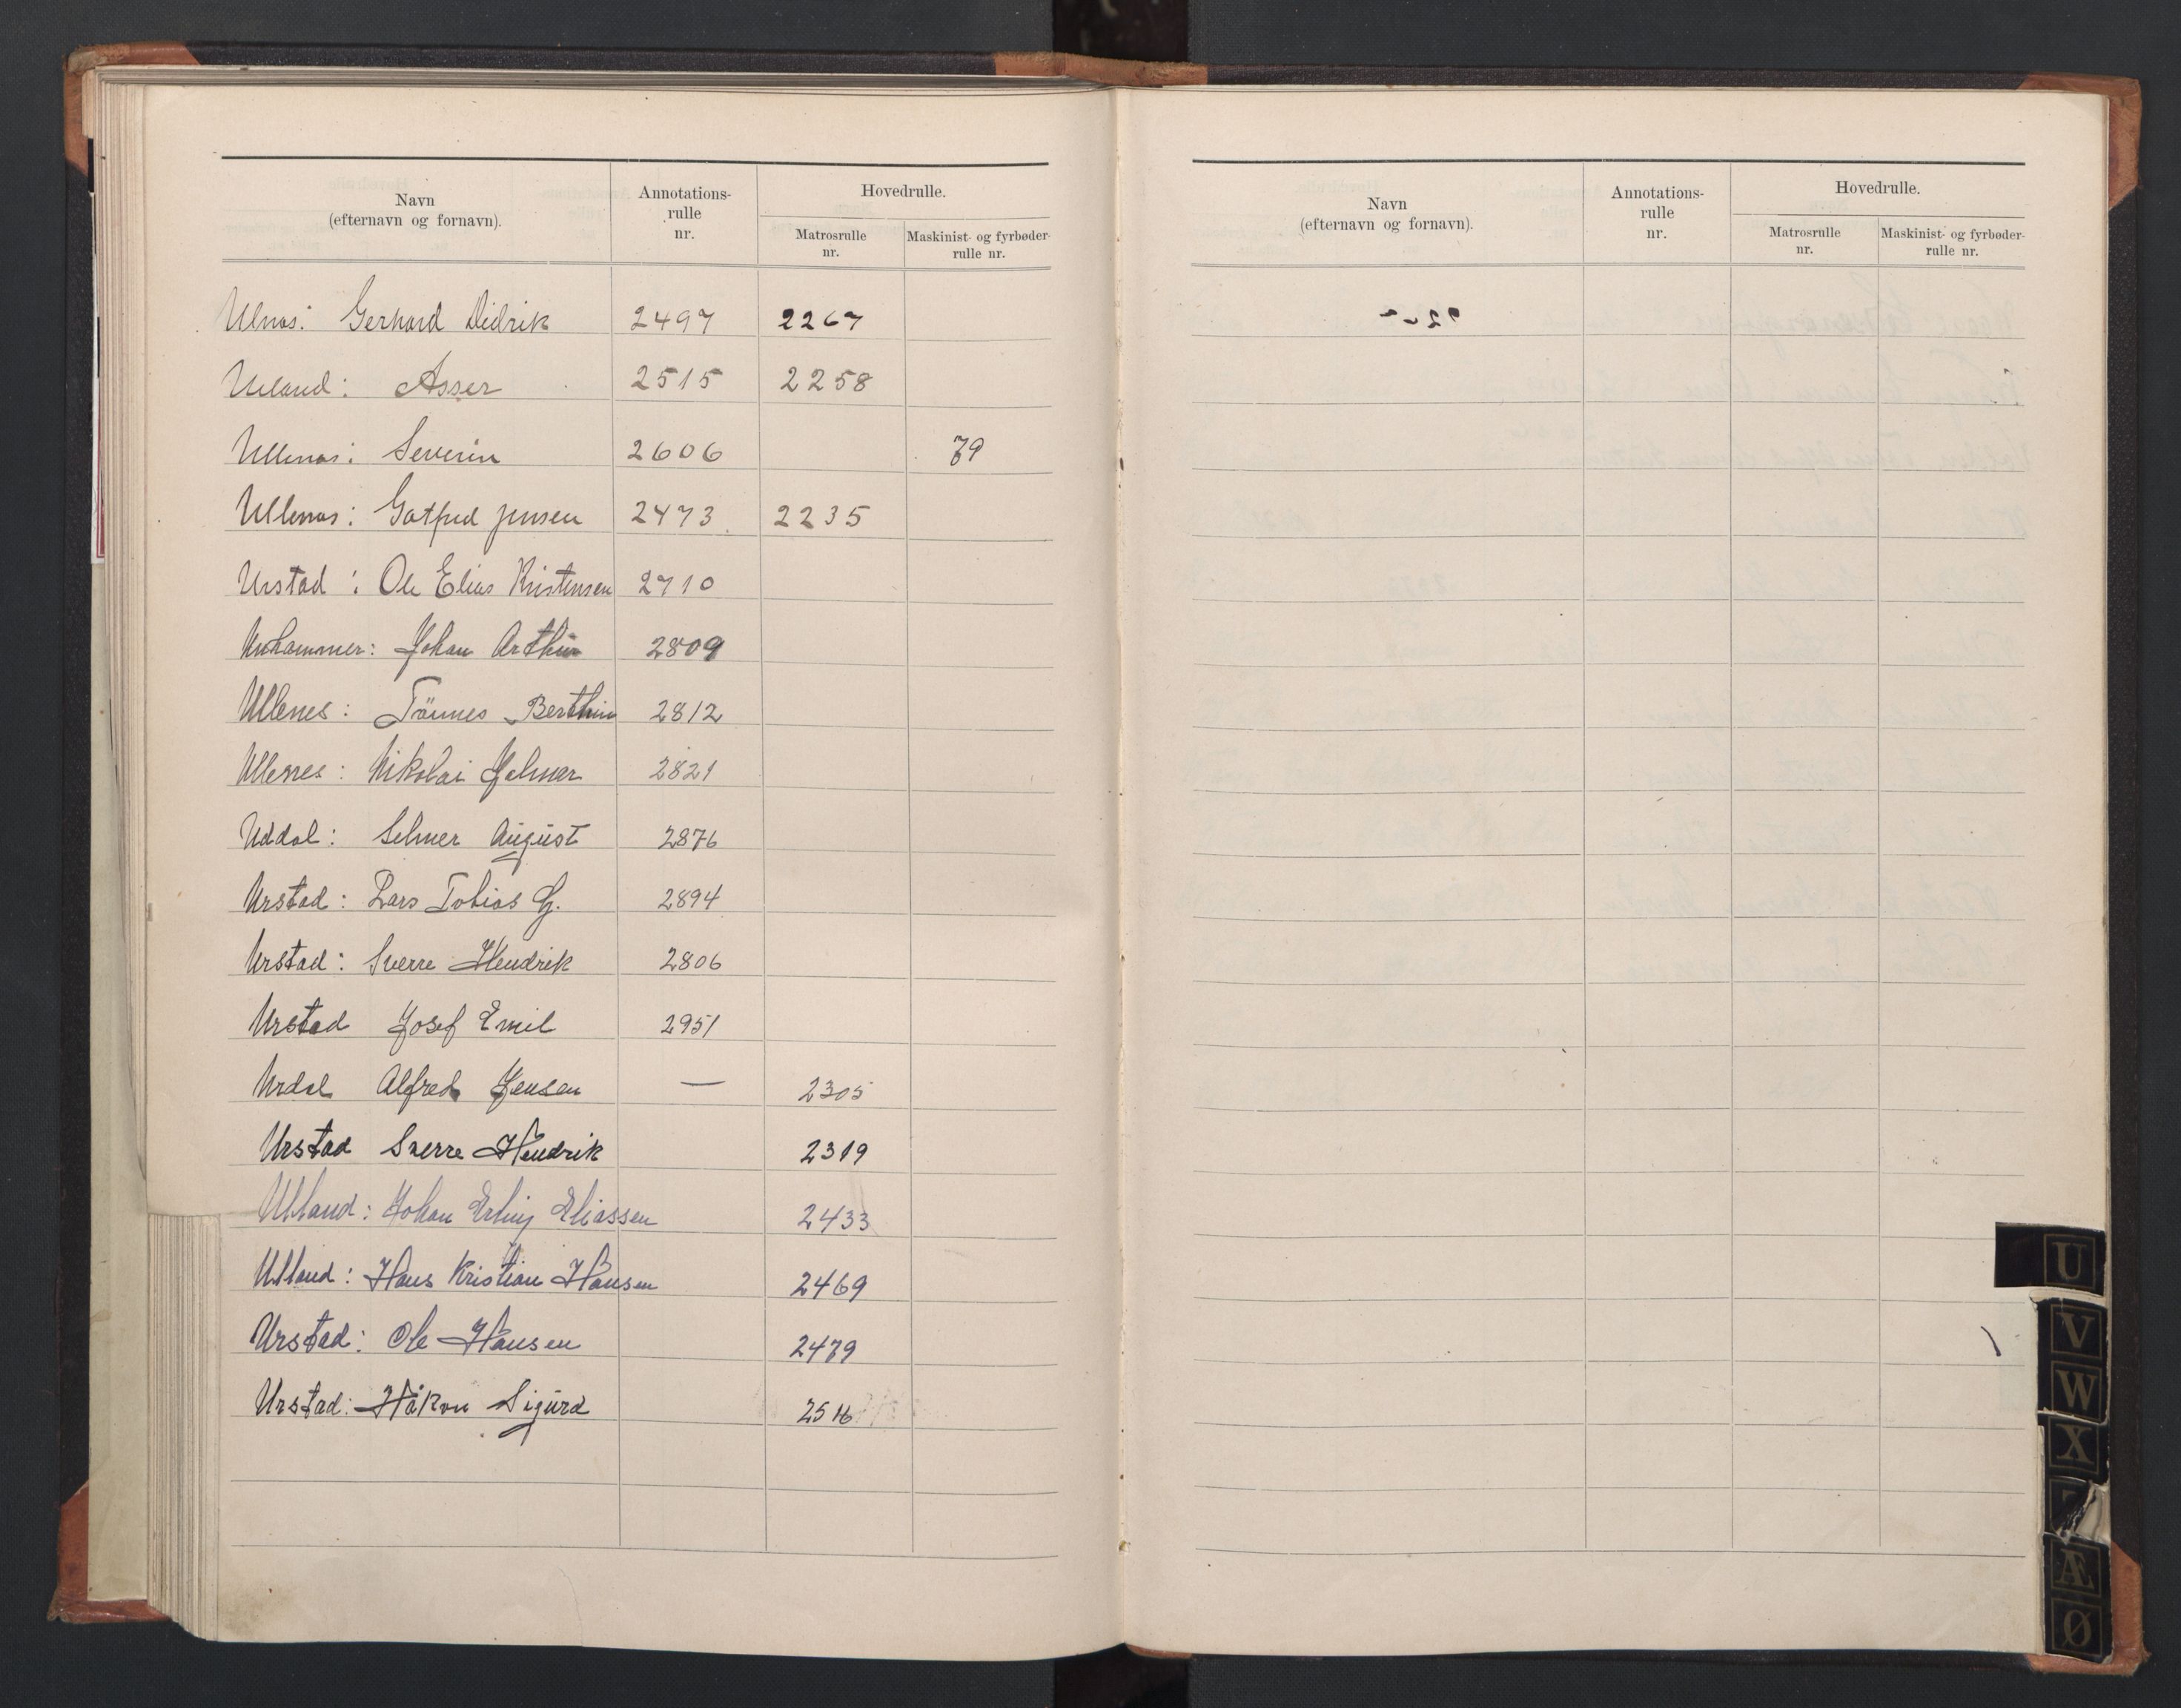 Navn
(efternavn og fornavn).
Annotations-
rulle
nr.
Hovedrulle.
Matrosrulle
nr.
Maskinist- og fyrbøder-
rulle nr.
Ulnæs: Gerhard Didrik 2497 2267
Ueland: Asser 2515 2258
Ullenæs: Severin 2606 79
Ullenæs: Gotfred Jensen 2473 2235
Urstad: Ole Elias Kristensen 2710
Unhammer: Johan Arthur 2809
Ullenes: Tönnes Berthin 2812
Ullenes: Nikolai Hjalmar 2821
Uddal: Selmer August 2876
Urstad: Lars Tobias G. 2894
Urstad: Sverre Hendrik 2806
Urstad Josef Emil 2951
Urdal Alfred Jensen — 2305
Urstad Sverre Hendrik 2319
Ulland: Johan Erling Eliassen 2433
Ulland: Hans Kristian Hansen 2469
Urstad: Ole Hansen 2479
Urstad: Håkon Sigurd
Navn
(efternavn og fornavn).
Annotations-
rulle
nr.
Hovedrulle.
Matrosrulle
nr.
Maskinist- og fyrbøder-
rulle nr.
U
V
W
X
Æ
Ø